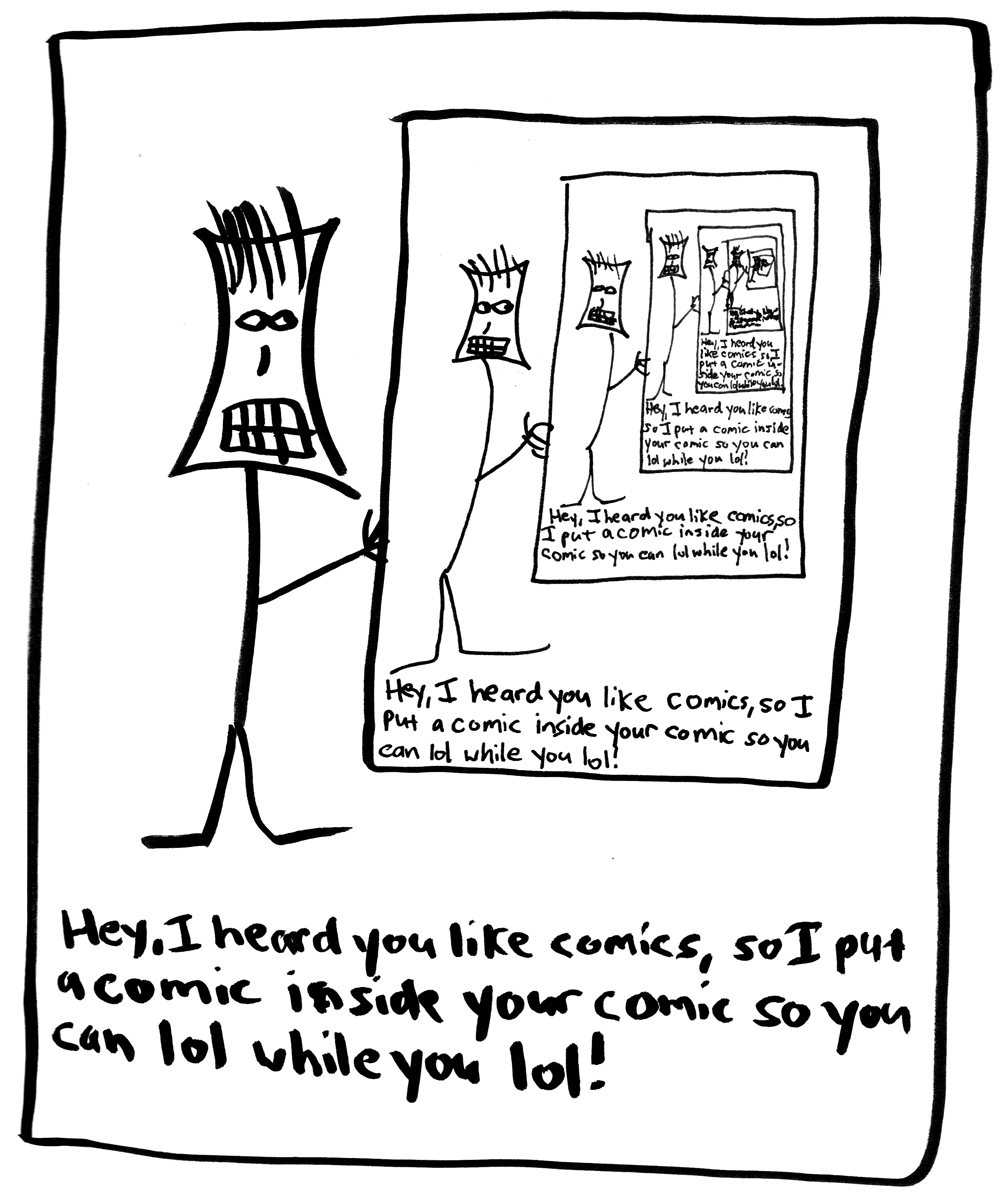 Hey, I heard you like comics, so I put
a comic inside your comic so you
can lol while you lol!
Hey, I heard you like comics, so I
put a comic inside your comic so you
can lol while you lol!
Hey, I heard you like comics, so
I put a comic inside your
comic so you can lol while you lol!
Hey, I heard you like comics
so I put a comic inside
your comic so you can
lol while you lol!
Hey, I heard you
like comics, so I
put a comic in-
side your comic so
you can lol while you lol!